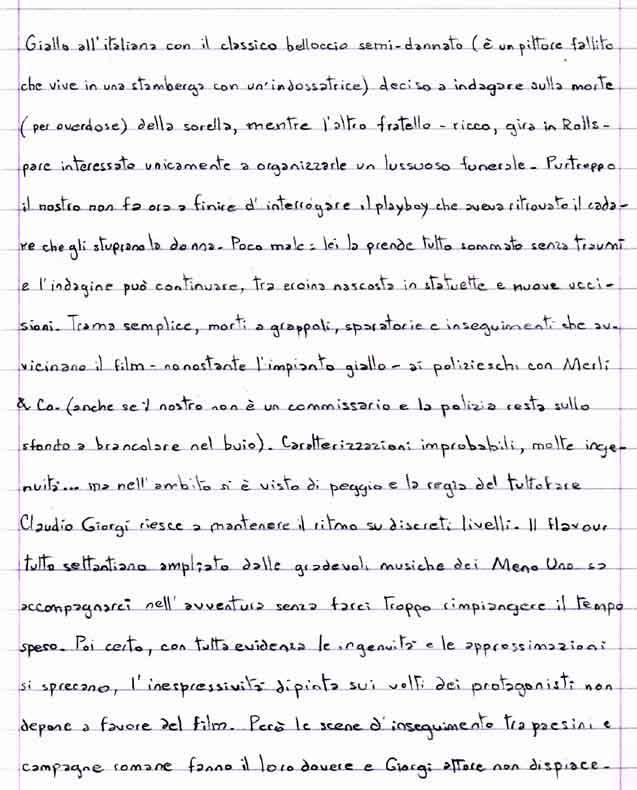 Giallo all'italiana con il classico belloccio semi-dannato (è un pittore fallito
che vive in una stamberga con un'indossatrice) deciso a indagare sulla morte
(per overdose) della sorella, mentre l'altro fratello - ricco, gira in Rolls -
pare interessato unicamente a organizzarle un lussuoso funerale. Purtroppo
il nostro non fa ora a finire d'interrogare il playboy che aveva ritrovato il cada-
re che gli stuprano la donna. Poco male: lei la prende tutto sommato senza traumi
e l'indagine può continuare, tra eroina nascosta in statuette e nuove ucci-
sioni. Trama semplice, morti a grappoli, sparatorie e inseguimenti che av-
vicinano il film - nonostante l'impianto giallo - ai polizieschi con Merli
& Co. (anche se il nostro non è un commissario e la polizia resta sullo
sfondo a brancolare nel buio). Caratterizzazioni improbabili, molte inge-
nuità... ma nell'ambito si è visto di peggio e la regia del tuttofare
Claudio Giorgi riesce a mantenere il ritmo su discreti livelli. Il flavour
tutto settantiano ampliato dalle gradevoli musiche dei Meno Uno sa
accompagnarci nell'avventura senza farci troppo rimpiangere il tempo
speso. Poi certo, con tutta evidenza le ingenuità e le approssimazioni
si sprecano, l'inespressività dipinta sui volti dei protagonisti non
depone a favore del film. Però le scene d'inseguimento tra paesini e
campagne romane fanno il loro dovere e Giorgi attore non dispiace.